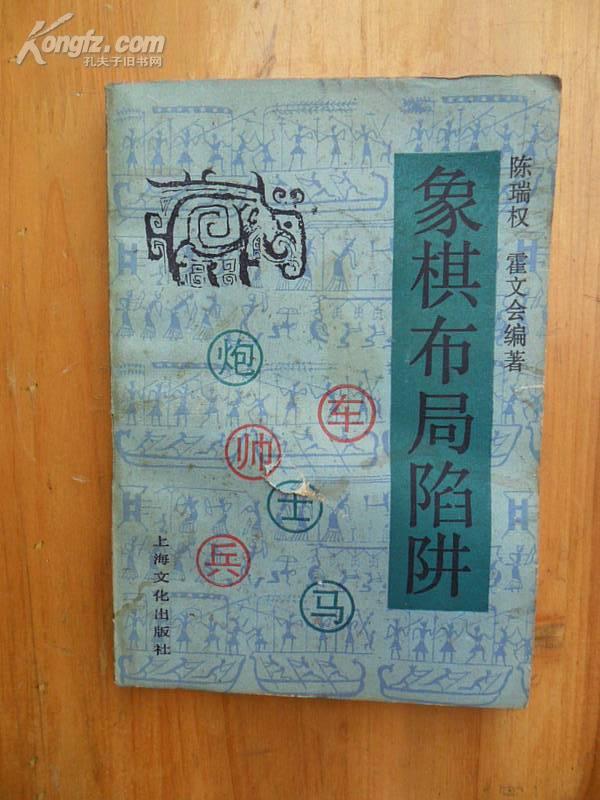 Kongfz.com
孔夫子旧书网
陈瑞权 霍文会编著
象棋布局陷阱
炮
车
帅
士
兵
马
上海文化出版社